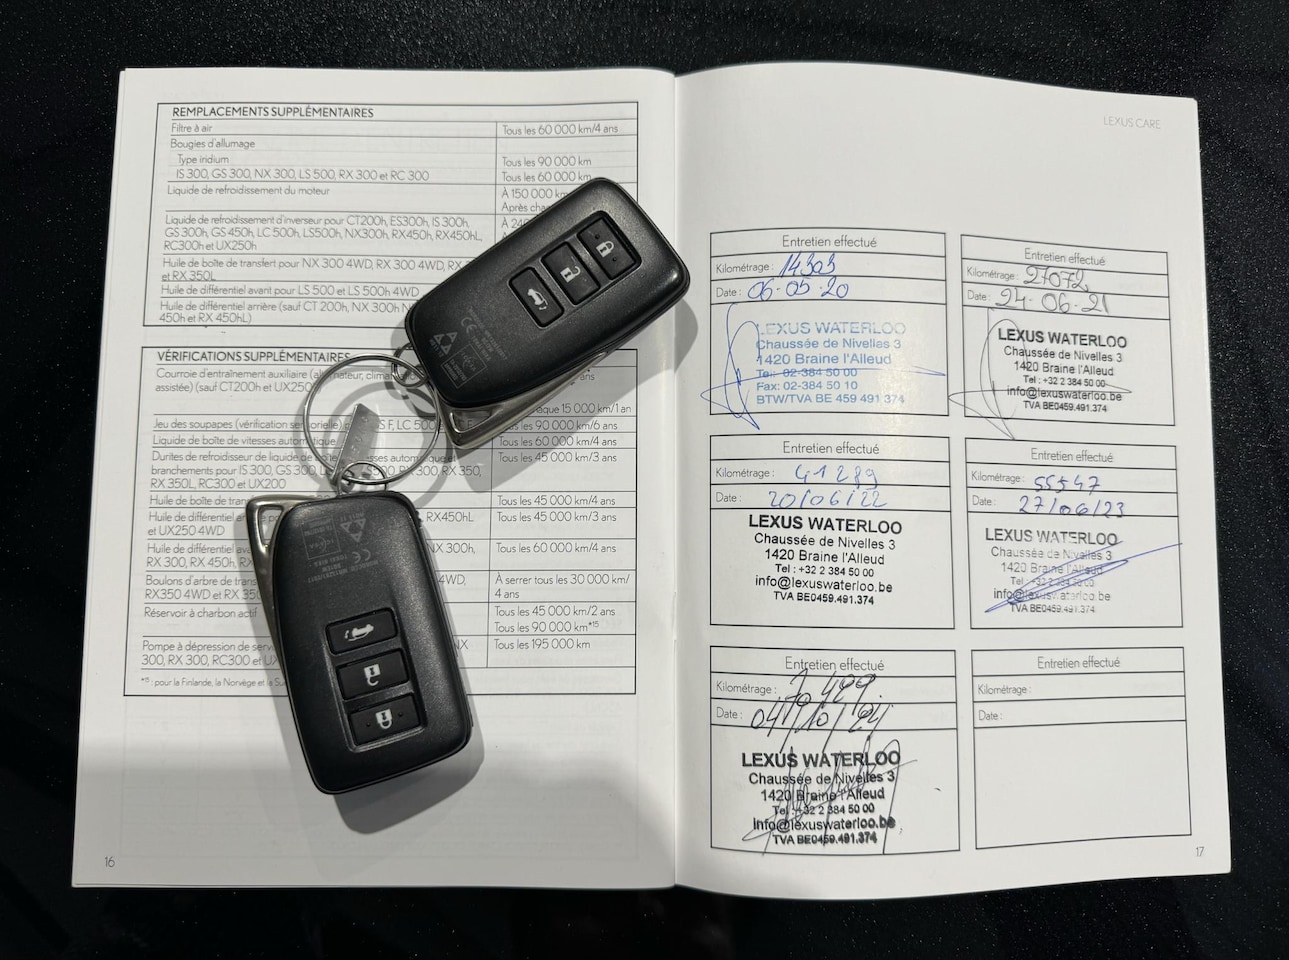 REMPLACEMENTS SUPPLÉMENTAIRES
Filtre à air
Tous les 60 000 km/4 ans
Bougies d'allumage
Type iridium
Tous les 90 000 km
IS 300, GS 300, NX 300, LS 500, RX 300 et RC 300
Tous les 60 000 km
Liquide de refroidissement du moteur
À 150 000 km
Après
Liquide de refroidissement d'inverseur pour CT200h, ES300h, IS 300h,
GS 300h, GS 450h, LC 500h, LS500h, NX300h, RX450h, RX450hL,
RC300h et UX250h
Huile de boîte de transfert pour NX 300 4WD, RX 300 4WD, RX
et RX 350L
Huile de différentiel avant pour LS 500 et LS 500h 4WD
Huile de différentiel arrière (sauf CT 200h, NX 300h
450h et RX 450hL)
VÉRIFICATIONS SUPPLÉMENTAIRES
Courroie d'entraînement auxiliaire
ans
assistée) (sauf CT200h et UX250
15 000 km/1 an
Jeu des soupapes (vérification
LC 500
Tous les 90 000 km/6 ans
Liquide de boîte de vitesses automatique
Tous les 60 000 km/4 ans
Durites de refroidisseur de liquide de
automatique et
Tous les 45 000 km/3 ans
branchements pour IS 300, GS 300,
RX 350,
RX 350L, RC300 et UX200
Huile de boîte de
Tous les 45 000 km/4 ans
Huile de différentiel
RX450hL
Tous les 45 000 km/3 ans
et UX250 4WD
Huile de différentiel
NX 300h,
Tous les 60 000 km/4 ans
RX 300, RX 450h,
Boulons d'arbre de
4WD,
À serrer tous les 30 000 km/
RX350 4WD et RX
4 ans
Réservoir à charbon actif
Tous les 45 000 km/2 ans
Tous les 90 000 km*15
Pompe à dépression de
NX
Tous les 195 000 km
300, RX 300, RC300 et
*15 : pour la Finlande, la Norvège et la
16
LEXUS CARE
Entretien effectué
Kilométrage : 14303
Date : 06-05-20
LEXUS WATERLOO
Chaussée de Nivelles 3
1420 Braine l'Alleud
Tel: 02-384 50 00
Fax: 02-384 50 10
BTW/TVA BE 459 491 374
Entretien effectué
Kilométrage : 27072
Date : 24-06-21
LEXUS WATERLOO
Chaussée de Nivelles 3
1420 Braine l'Alleud
Tel : +32 2 384 50 00
info@lexuswaterloo.be
TVA BE0459.491.374
Entretien effectué
Kilométrage : 41289
Date : 20/06/22
LEXUS WATERLOO
Chaussée de Nivelles 3
1420 Braine l'Alleud
Tel : +32 2 384 50 00
info@lexuswaterloo.be
TVA BE0459.491.374
Entretien effectué
Kilométrage : 55547
Date : 27/06/23
LEXUS WATERLOO
Chaussée de Nivelles 3
1420 Braine l'Alleud
Tel : +32 2 384 50 00
info@lexuswaterloo.be
TVA BE0459.491.374
Entretien effectué
Kilométrage : 70 429
Date : 04/10/24
LEXUS WATERLOO
Chaussée de Nivelles 3
1420 Braine l'Alleud
Tel : +32 2 384 50 00
info@lexuswaterloo.be
TVA BE0459.491.374
Entretien effectué
Kilométrage :
Date :
17